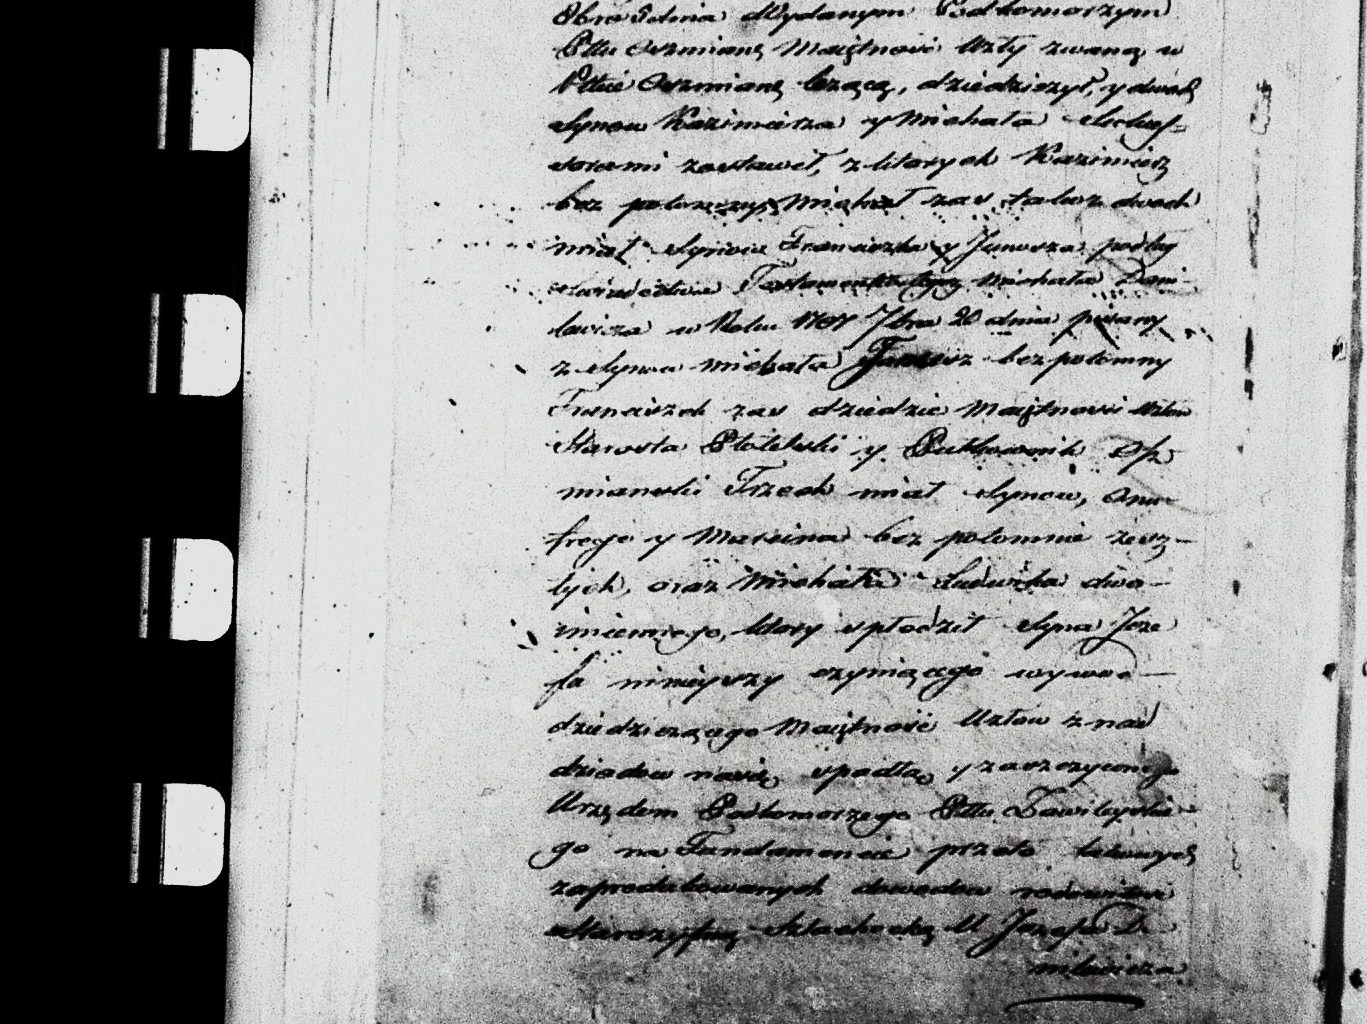 8bra 5 dnia Wydanym Podkomorzym
Pttu Oszmianę Maiętność Uzły zwaną w
Pttcie Oszmianę leżącą, dziedziczył, y dwoch
Synow Kazimierza y Michała Sukces-
sorami zostawił, z ktorych Kazimierz
bez potomny, Michał zaś także dwoch
miał Synow Franciszka y Janusza podług
swiadectwa Testamentu tego Michała Dani-
lewicza w Roku 1707 7bra 20 dnia pisany
z Synow Michała Janusz bez potomny
Franciszek zaś dziedzic Maiętnosci Uzłow
Starosta Płotelski y Pułkownik Osz-
mianski Trzech miał Synow, Onu-
frego y Marcina bez potomnie zesz-
łych, oraz Michała Ludwika dwo-
imiennego, ktory spłodził Syna Joze
fa ninieyszy czyniącego wywod
dziedziczącego Maiętność Uzłow z nad
dziadow naszę spadłą y zaszczyconego
Urzędem Podkomorzego Pttu Zawileyskie-
go na Fundamencie przeto takowych
zaproduktowanych dowodow rodowitość
Starożytną Szlachecką U Jozefa Da
nilewicza